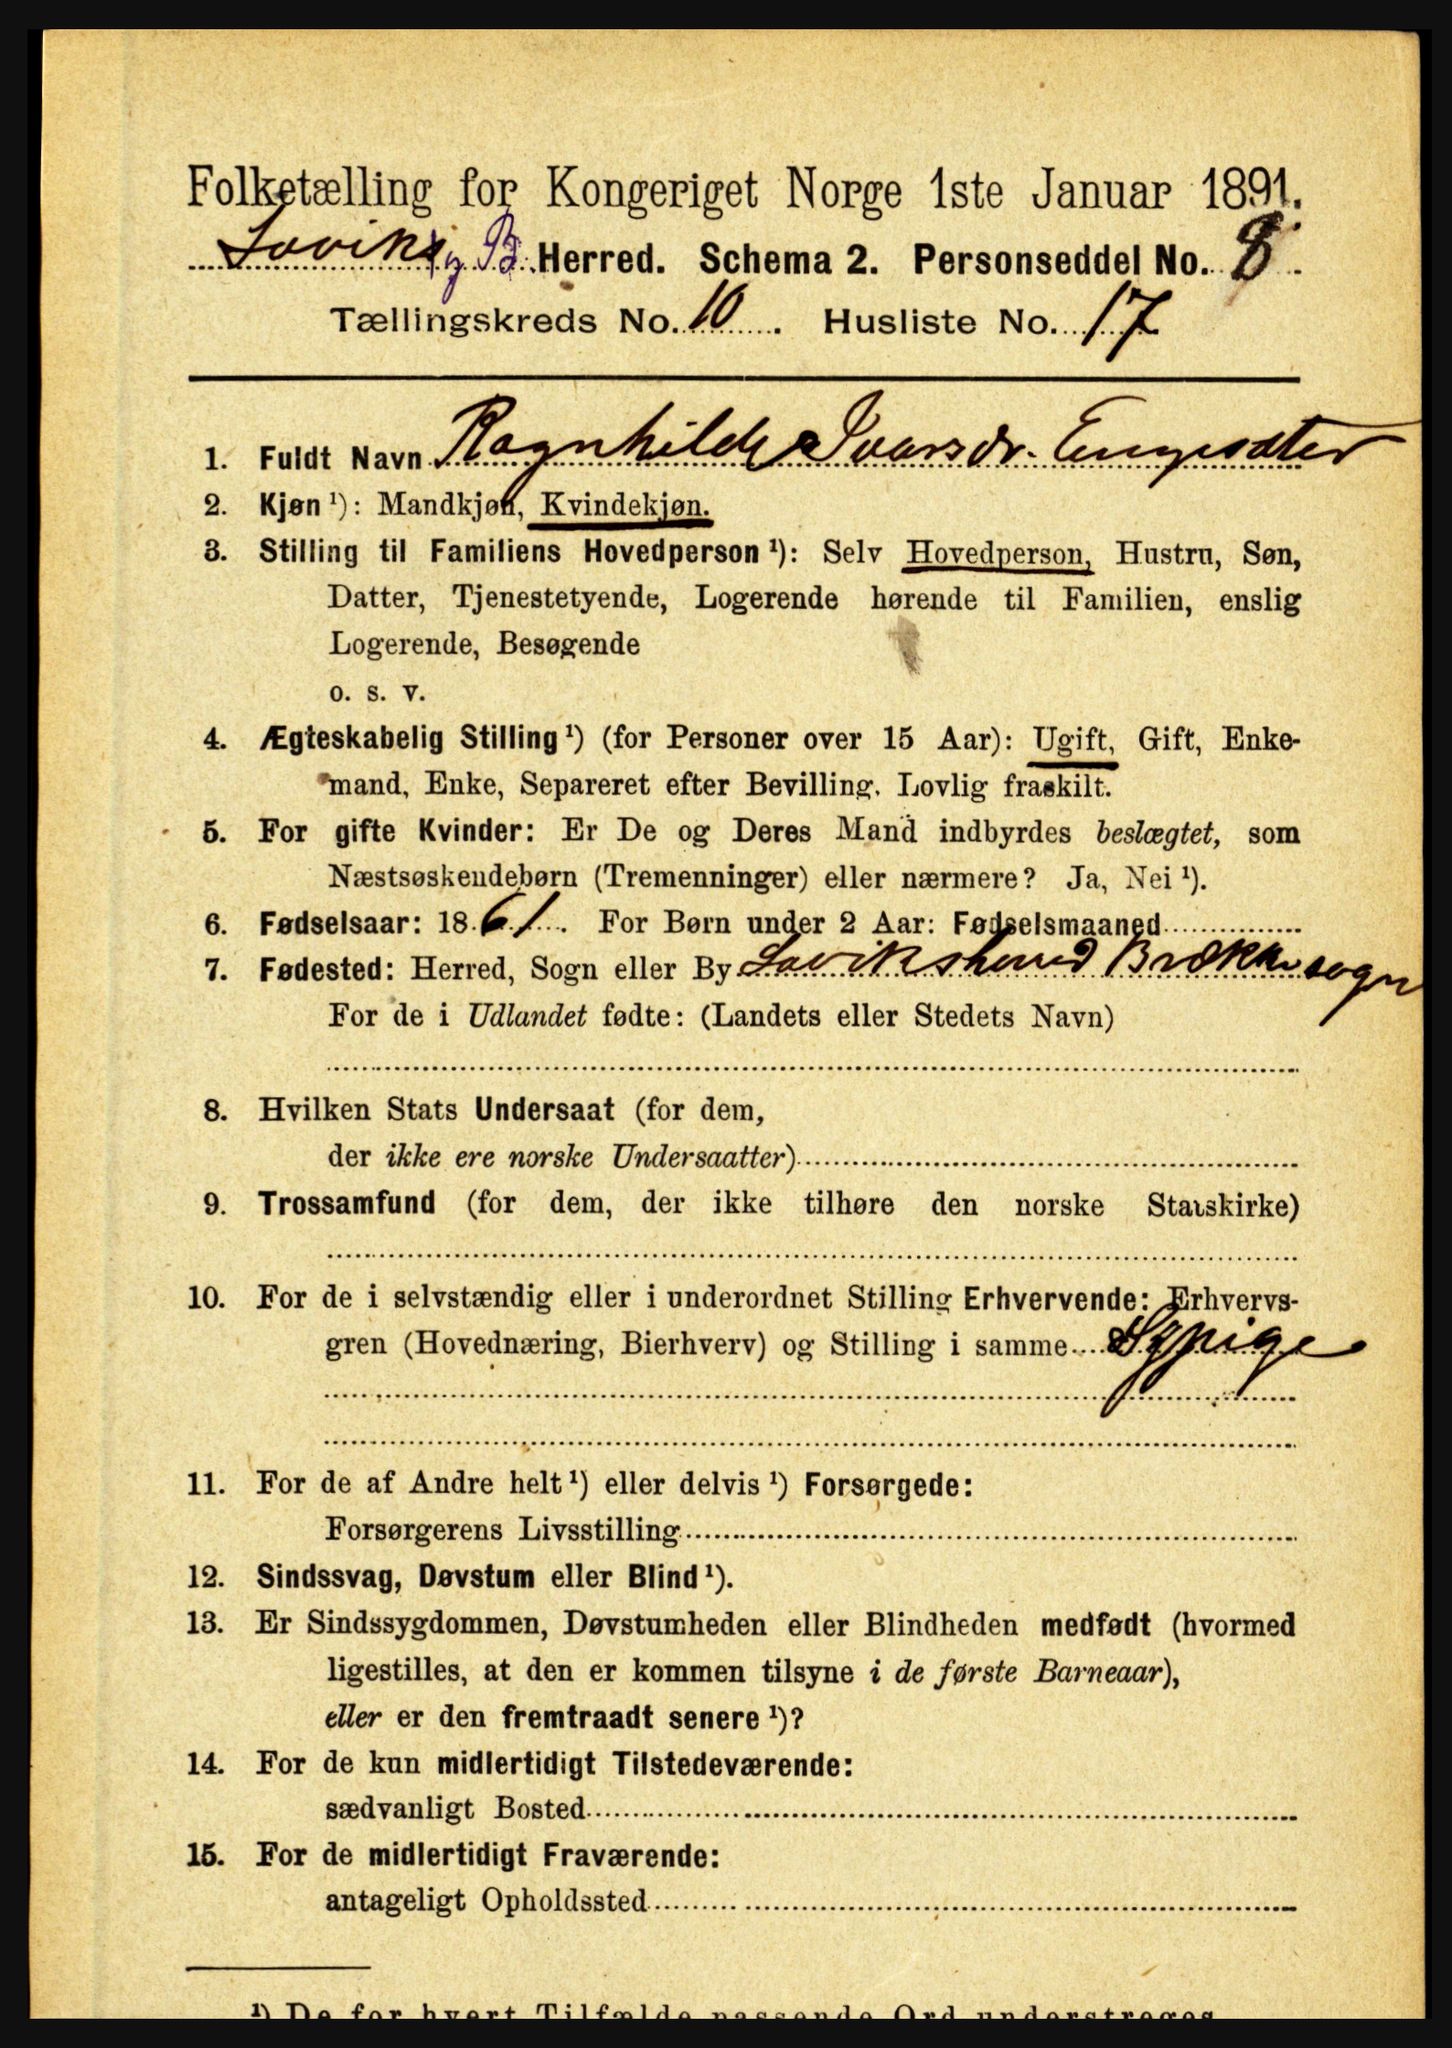 Folketælling for Kongeriget Norge 1ste Januar 1891.
Laviks og B. Herred. Schema 2. Personseddel No. 8.
Tællingskreds No. 10. Husliste No. 17
1. Fuldt Navn Ragnhilde Ivarsdr. Engesæter
2. Kjøn ¹): Mandkjøn, Kvindekjøn.
3. Stilling til Familiens Hovedperson ¹): Selv Hovedperson, Hustru, Søn,
Datter, Tjenestetyende, Logerende hørende til Familien, enslig
Logerende, Besøgende
o. s. v.
4. Ægteskabelig Stilling ¹) (for Personer over 15 Aar): Ugift, Gift, Enke-
mand, Enke, Separeret efter Bevilling. Lovlig fraskilt.
5. For gifte Kvinder: Er De og Deres Mand indbyrdes beslægtet, som
Næstsøskendebørn (Tremenninger) eller nærmere? Ja, Nei ¹).
6. Fødselsaar: 1861. For Børn under 2 Aar: Fødselsmaaned
7. Fødested: Herred, Sogn eller By Laviksherred Brække sogn
For de i Udlandet fødte: (Landets eller Stedets Navn)
8. Hvilken Stats Undersaat (for dem,
der ikke ere norske Undersaatter)
9. Trossamfund (for dem, der ikke tilhøre den norske Statskirke)
10. For de i selvstændig eller i underordnet Stilling Erhvervende: Erhvervs-
gren (Hovednæring, Bierhverv) og Stilling i samme Sypige
11. For de af Andre helt ¹) eller delvis ¹) Forsørgede:
Forsørgerens Livsstilling
12. Sindssvag, Døvstum eller Blind ¹).
13. Er Sindssygdommen, Døvstumheden eller Blindheden medfødt (hvormed
ligestilles, at den er kommen tilsyne i de første Barneaar),
eller er den fremtraadt senere ¹)?
14. For de kun midlertidigt Tilstedeværende:
sædvanligt Bosted
15. For de midlertidigt Fraværende:
antageligt Opholdssted
¹) De for hvert Tilfælde passende Ord understreges